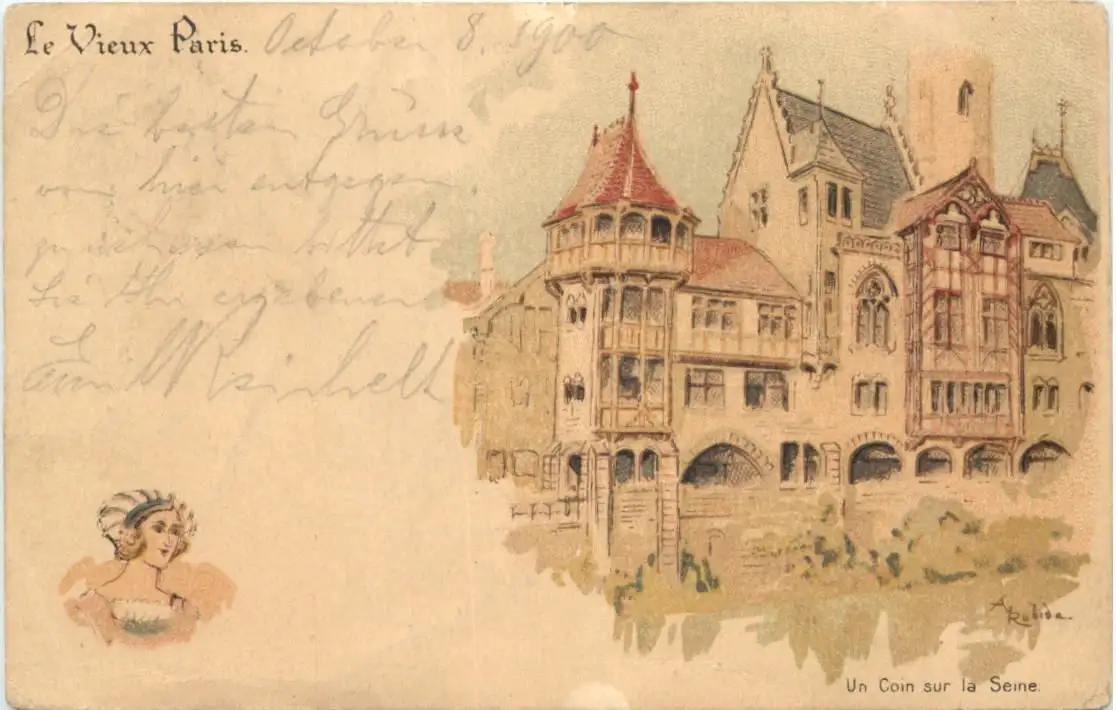 Le Vieux Paris. October 8. 1900
Die besten Grüsse
von hier entgegen
zu nehmen bittet
Sie Ihr ergebener
Emil Reinhelt
A Robida.
Un Coin sur la Seine.